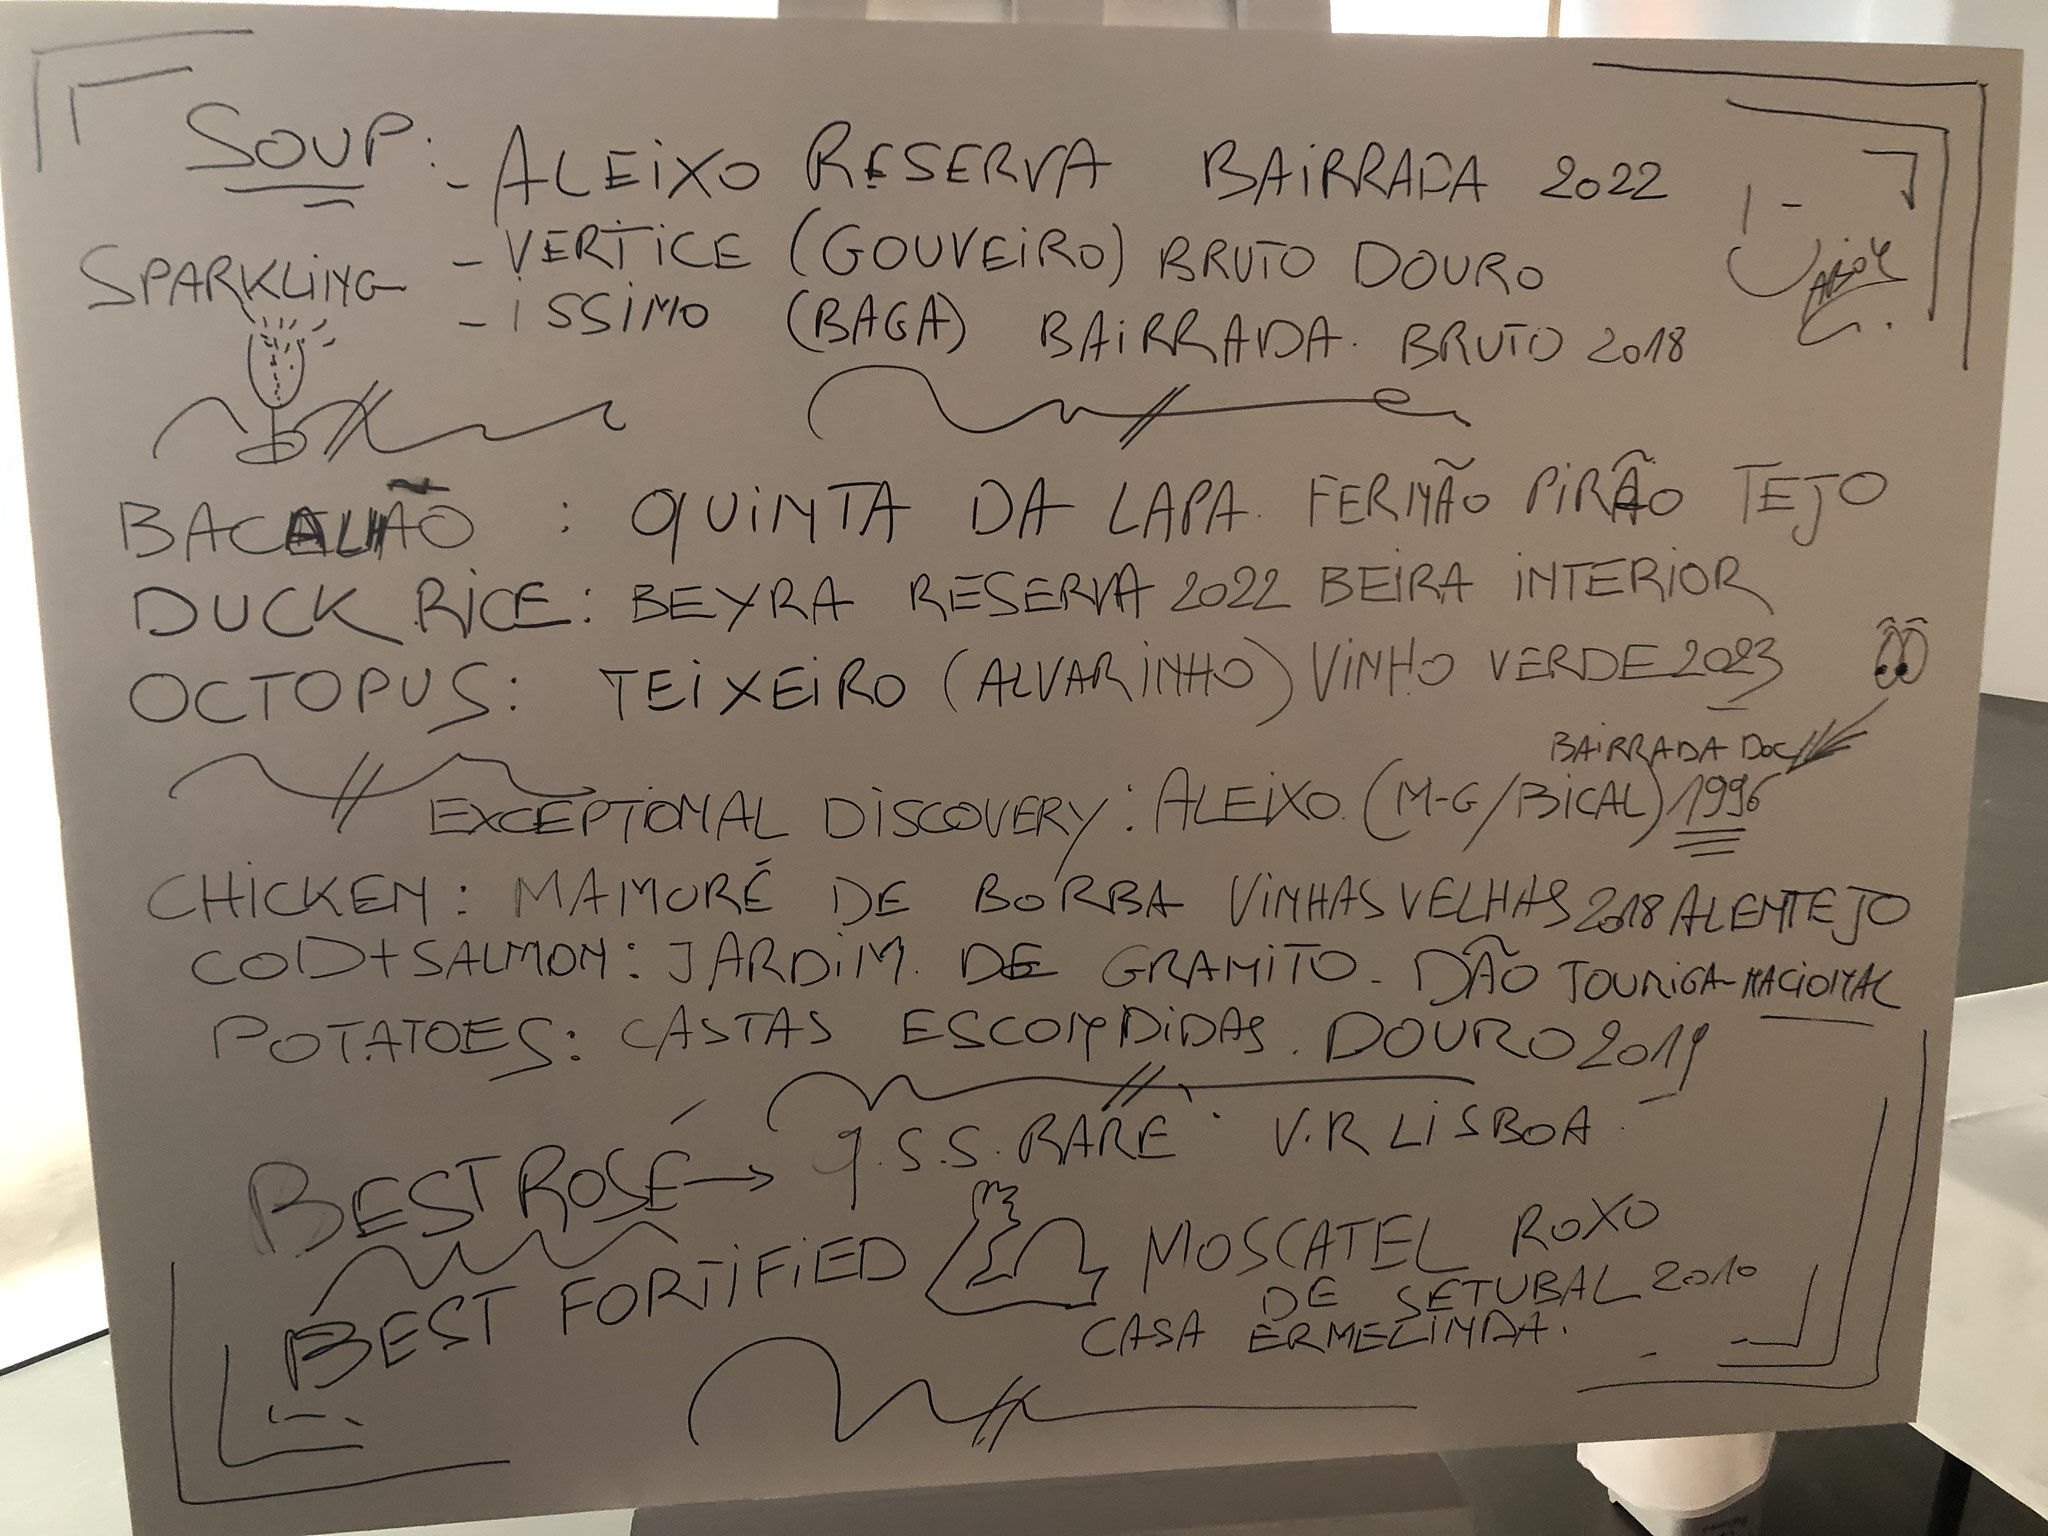 SOUP: - ALEIXO RESERVA BAIRRADA 2022
SPARKLING - VERTICE (GOUVEIRO) BRUTO DOURO
- ISSIMO (BAGA) BAIRRADA. BRUTO 2018
BACALHÃO : QUINTA DA LAPA. FERNÃO PIRÃO TEJO
DUCK RICE: BEYRA RESERVA 2022 BEIRA INTERIOR
OCTOPUS: TEIXEIRO (ALVARINHO) VINHO VERDE 2023
BAIRRADA DOC
EXCEPTIONAL DISCOVERY: ALEIXO. (M-G/BICAL) 1996
CHICKEN: MAMORÉ DE BORBA VINHAS VELHAS 2018 ALENTEJO
COD+SALMON: JARDIM. DE GRANITO - DÃO TOURIGA-NACIONAL
POTATOES: CASTAS ESCONDIDAS. DOURO 2019
BEST ROSÉ → Q.S.S. RARE V.R LISBOA
BEST FORTIFIED MOSCATEL ROXO
DE SETUBAL 2010
CASA ERMELINDA.